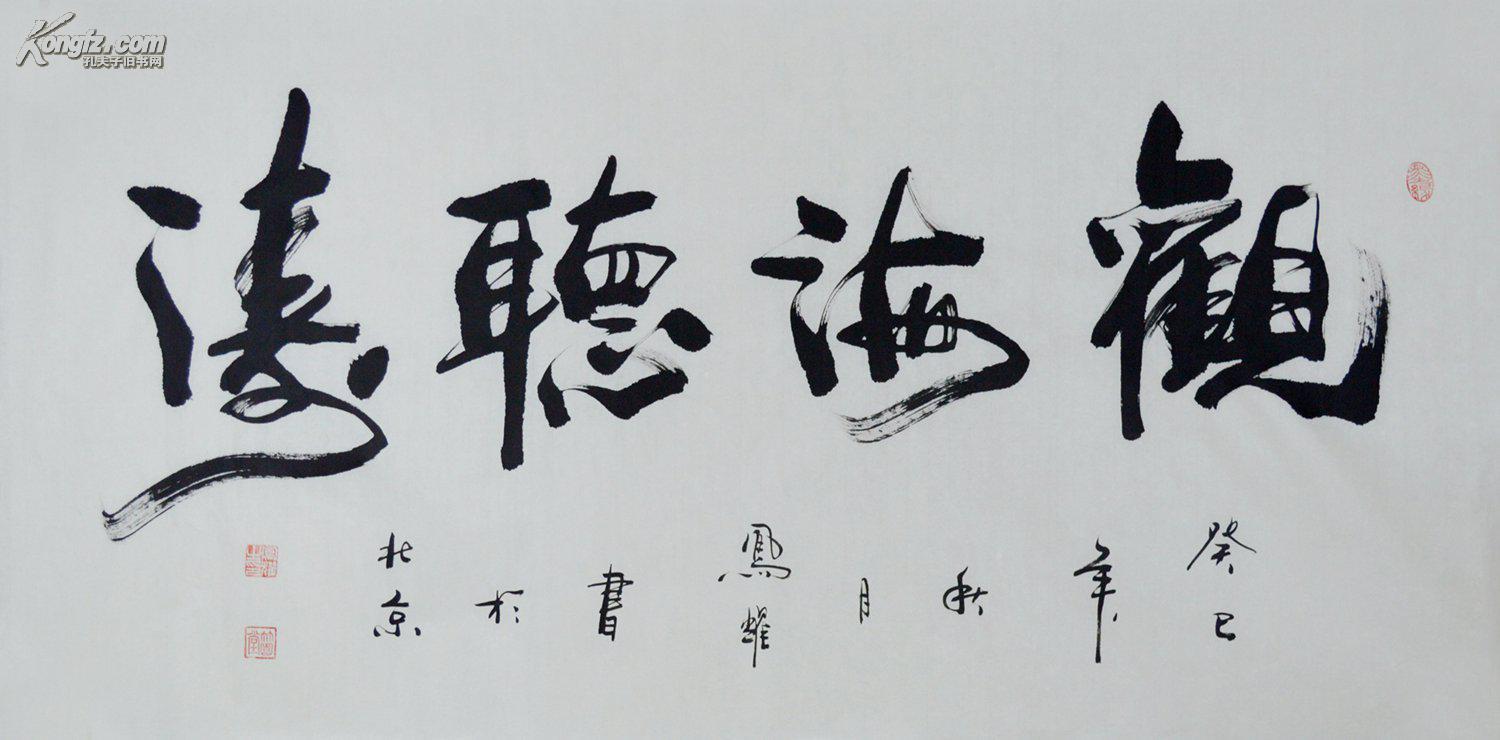 Kongfz.com
孔夫子旧书网
觀海聽濤
癸巳年秋月鳳耀書於北京